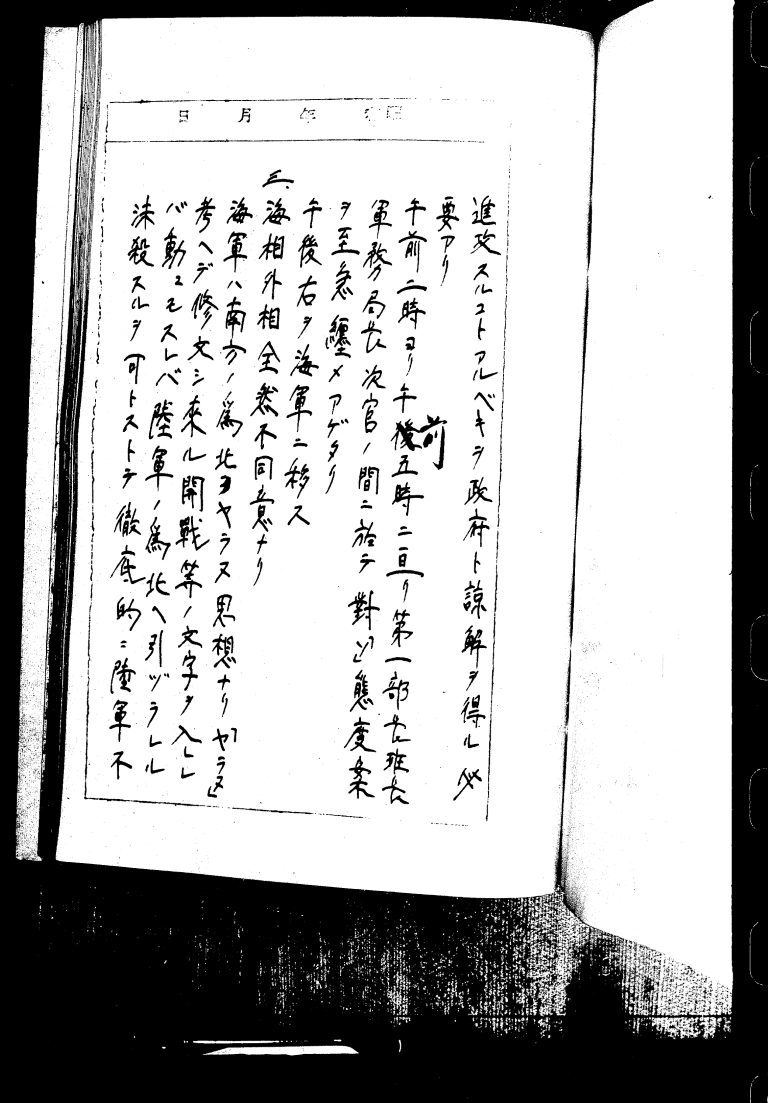 昭和 年 月 日
進攻スルコトアルベキヲ政府ト諒解ヲ得ル必
要アリ
午前二時ヨリ午前五時ニ亘リ第一部長班長
軍務局長次官ノ間ニ於テ對「ソ」態度案
ヲ至急纏メアゲタリ
午後右ヲ海軍ニ移ス
三、海相外相全然不同意ナリ
海軍ハ南方ノ爲北ヲヤラヌ思想ナリ「ヤラヌ」
考ヘデ修文シ來ル開戰等ノ文字ヲ入レレ
バ動ユモスレバ陸軍ノ爲北ヘ引ヅラレル
法殺スルヲ可トストテ徹底的ニ陸軍不